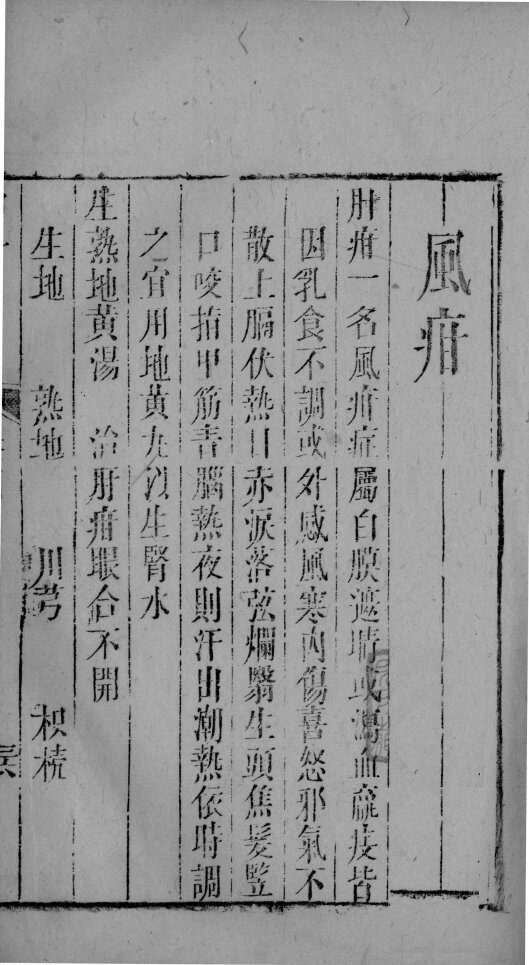 風疳
肝疳一名風疳症屬白膜遮睛或瀉血羸疲皆
因乳食不調或外感風寒內傷喜怒邪氣不
散上膈伏熱目赤淚落弦爛翳生頭焦髮豎
口咬指甲筋青腦熱夜則汗出潮熱依時調
之宜用地黃丸以生腎水
生熟地黃湯 治肝疳眼合不開
生地 熟地 川芎 枳梳